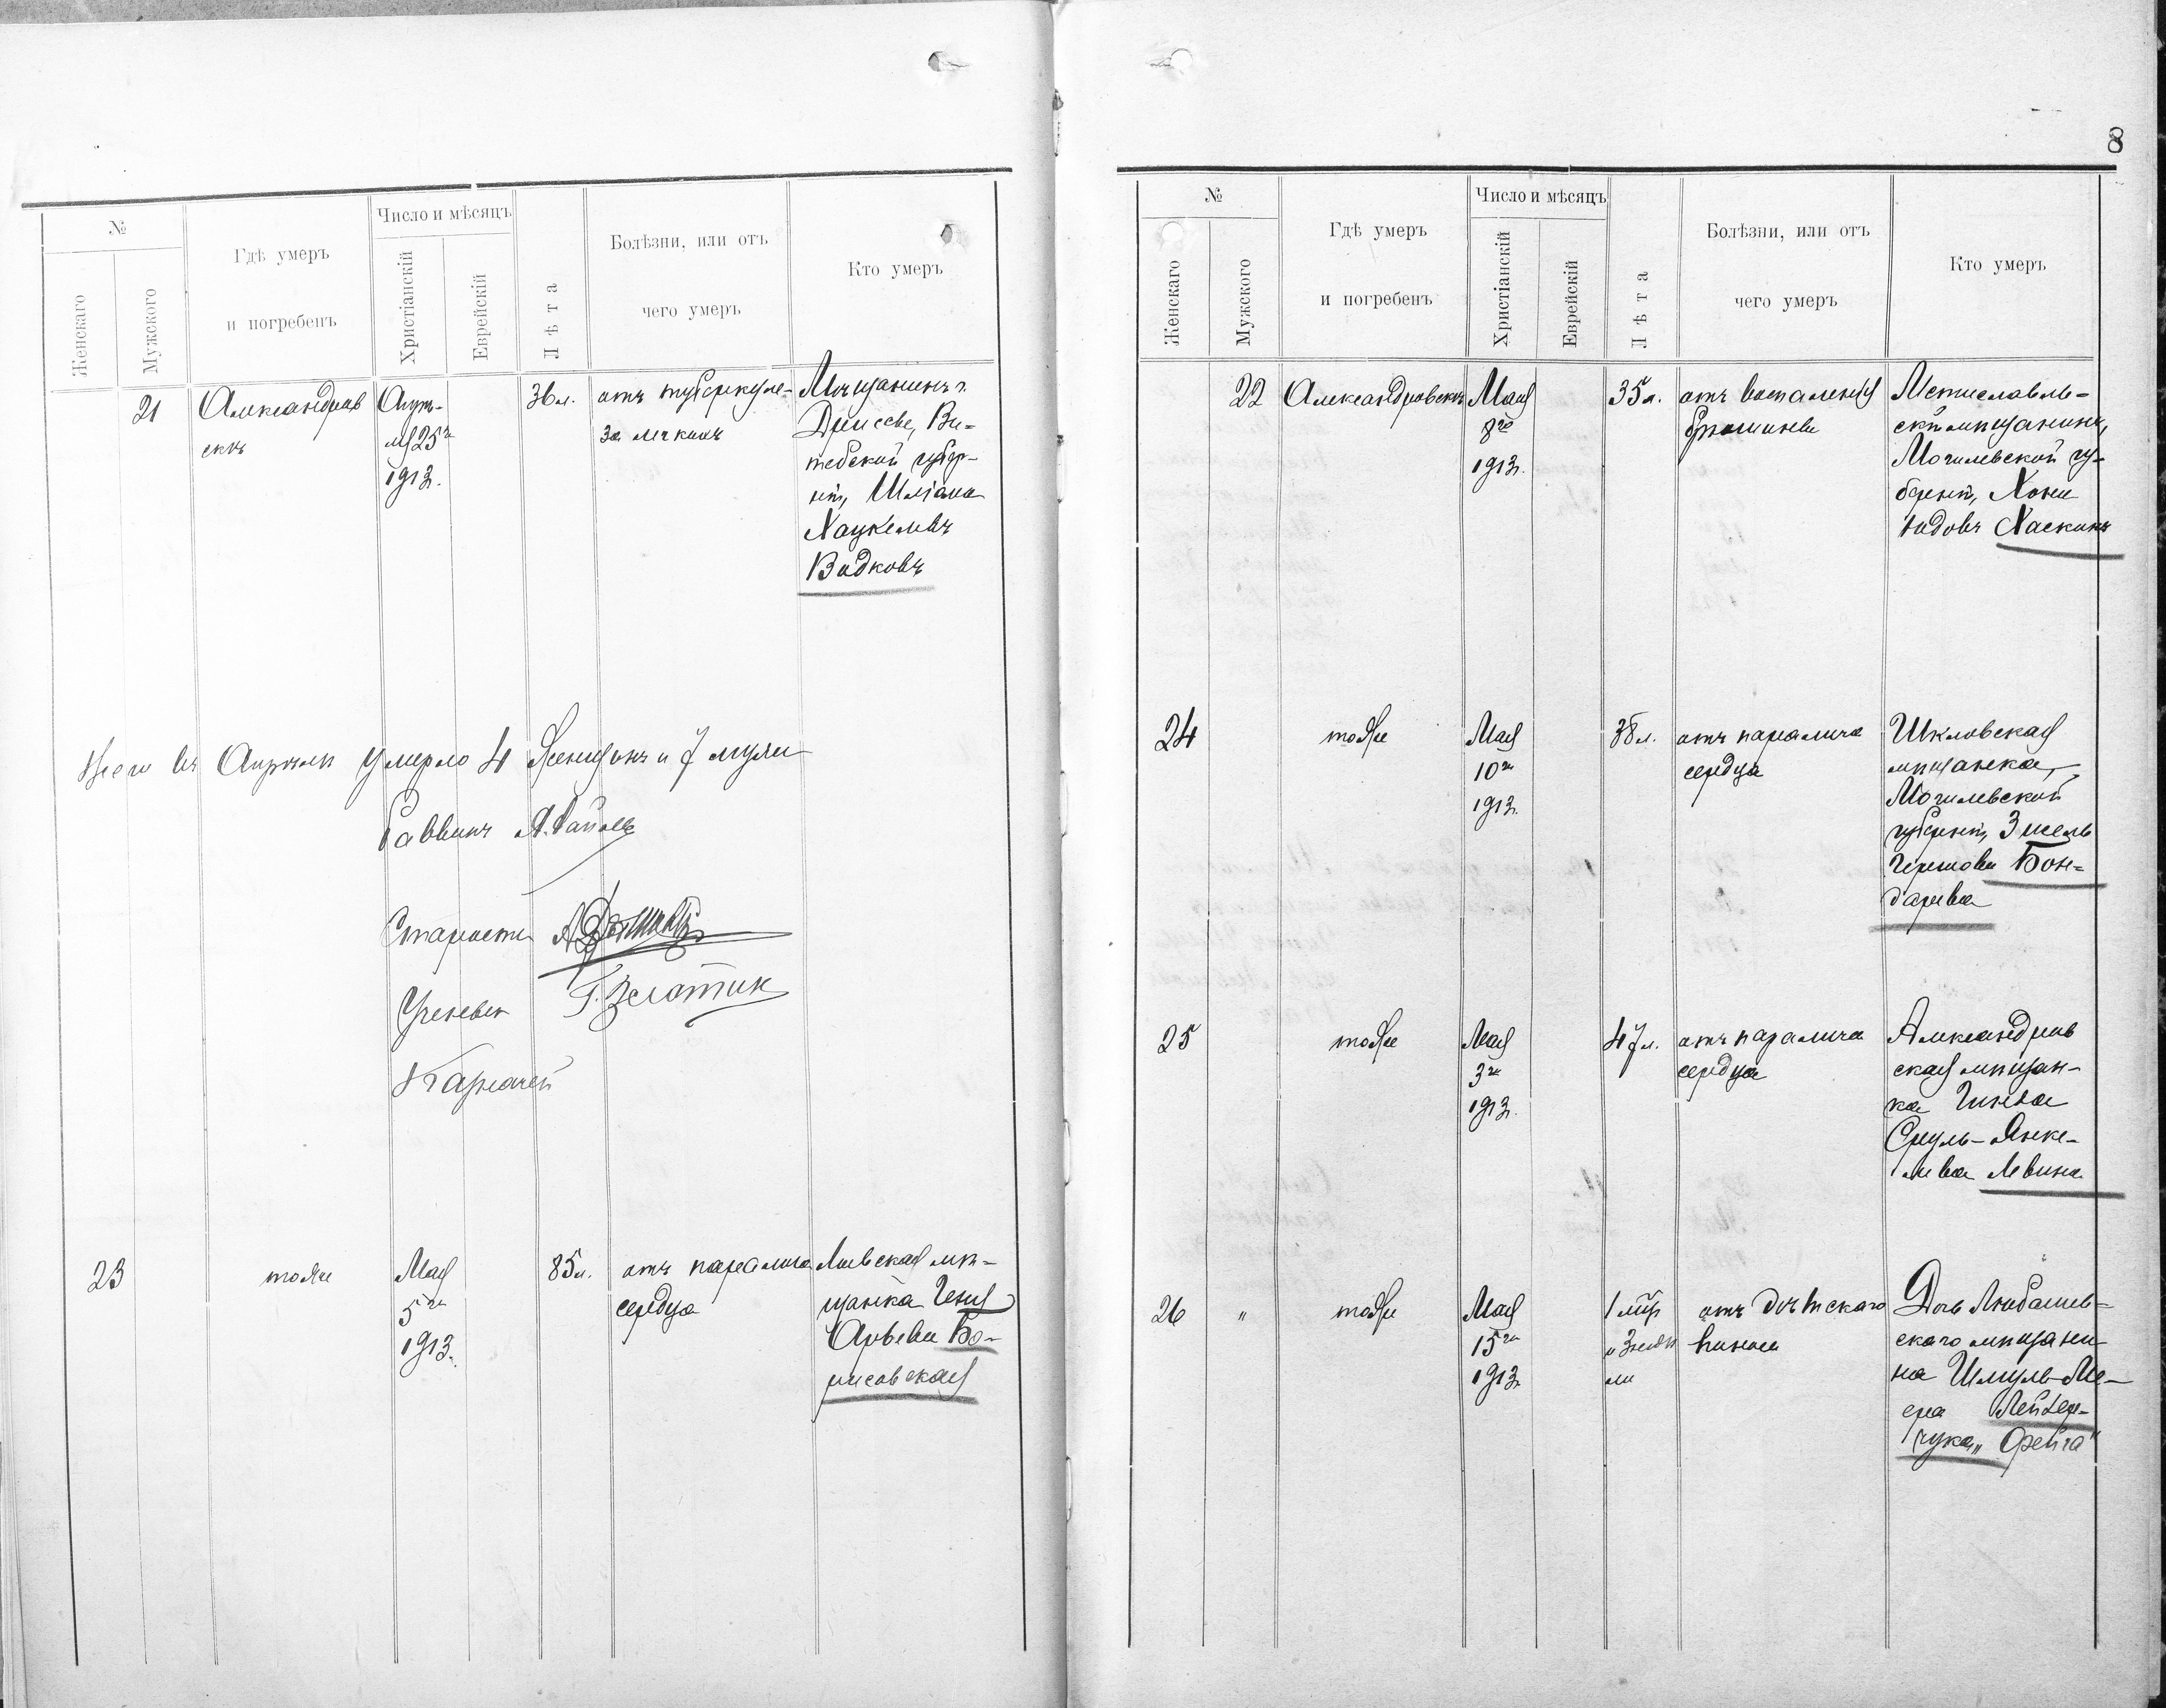 №
Женскаго
Мужского
Гдѣ умеръ
и погребенъ
Число и мѣсяцъ
Христіанскій
Еврейскій
Лѣта
Болѣзни, или отъ
чего умеръ
Кто умеръ
21
Александров
скъ
Апрѣ-
ля 25го
1913.
36 л.
отъ туберкуле-
за легкихъ
Мѣщанинъ г.
Дриссы, Ви-
тебской губер-
ніи,
Хацкелевъ
Видковъ
Всего въ Апрѣлѣ умерло 4 женщинъ и 7 мужчи
Раввинъ
Староста
Ученый
Г. Золотик
Казначей
23
тоже
Мая
5го
1913.
85 л.
отъ паралича
сердца
мѣ-
щанка Геня
Бо-
рисовская
8
№
Женскаго
Мужского
Гдѣ умеръ
и погребенъ
Число и мѣсяцъ
Христіанскій
Еврейскій
Лѣта
Болѣзни, или отъ
чего умеръ
Кто умеръ
22
Александровскъ
Мая
8го
1913.
35 л.
отъ воспаленія
брюшины
Мстиславль-
скій мѣщанинъ,
Могилевской гу-
берніи, Хоны
Юдовъ Хаскинъ
24
тоже
Мая
10го
1913.
38 л.
отъ паралича
сердца
Шкловская
мѣщанка,
Могилевской
губерніи, Зисель
Гершова Бон-
дарева
25
тоже
Мая
3го
1913.
47 л.
отъ паралича
сердца
Александров
ская мѣщан-
ка
Сруль-Янке-
лева Левина
26
"
тоже
Мая
15го
1913
1 мѣс
и 3 недѣ
ли
отъ дѣтскаго
Дочь Любашев-
скаго мѣщани-
на Шмуль-Ме-
ера Лейдер-
чука „Фейга"